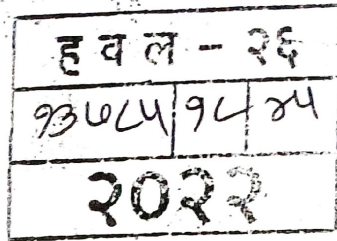 हवल - २६
१३७८५ १८ ४५
२०२२